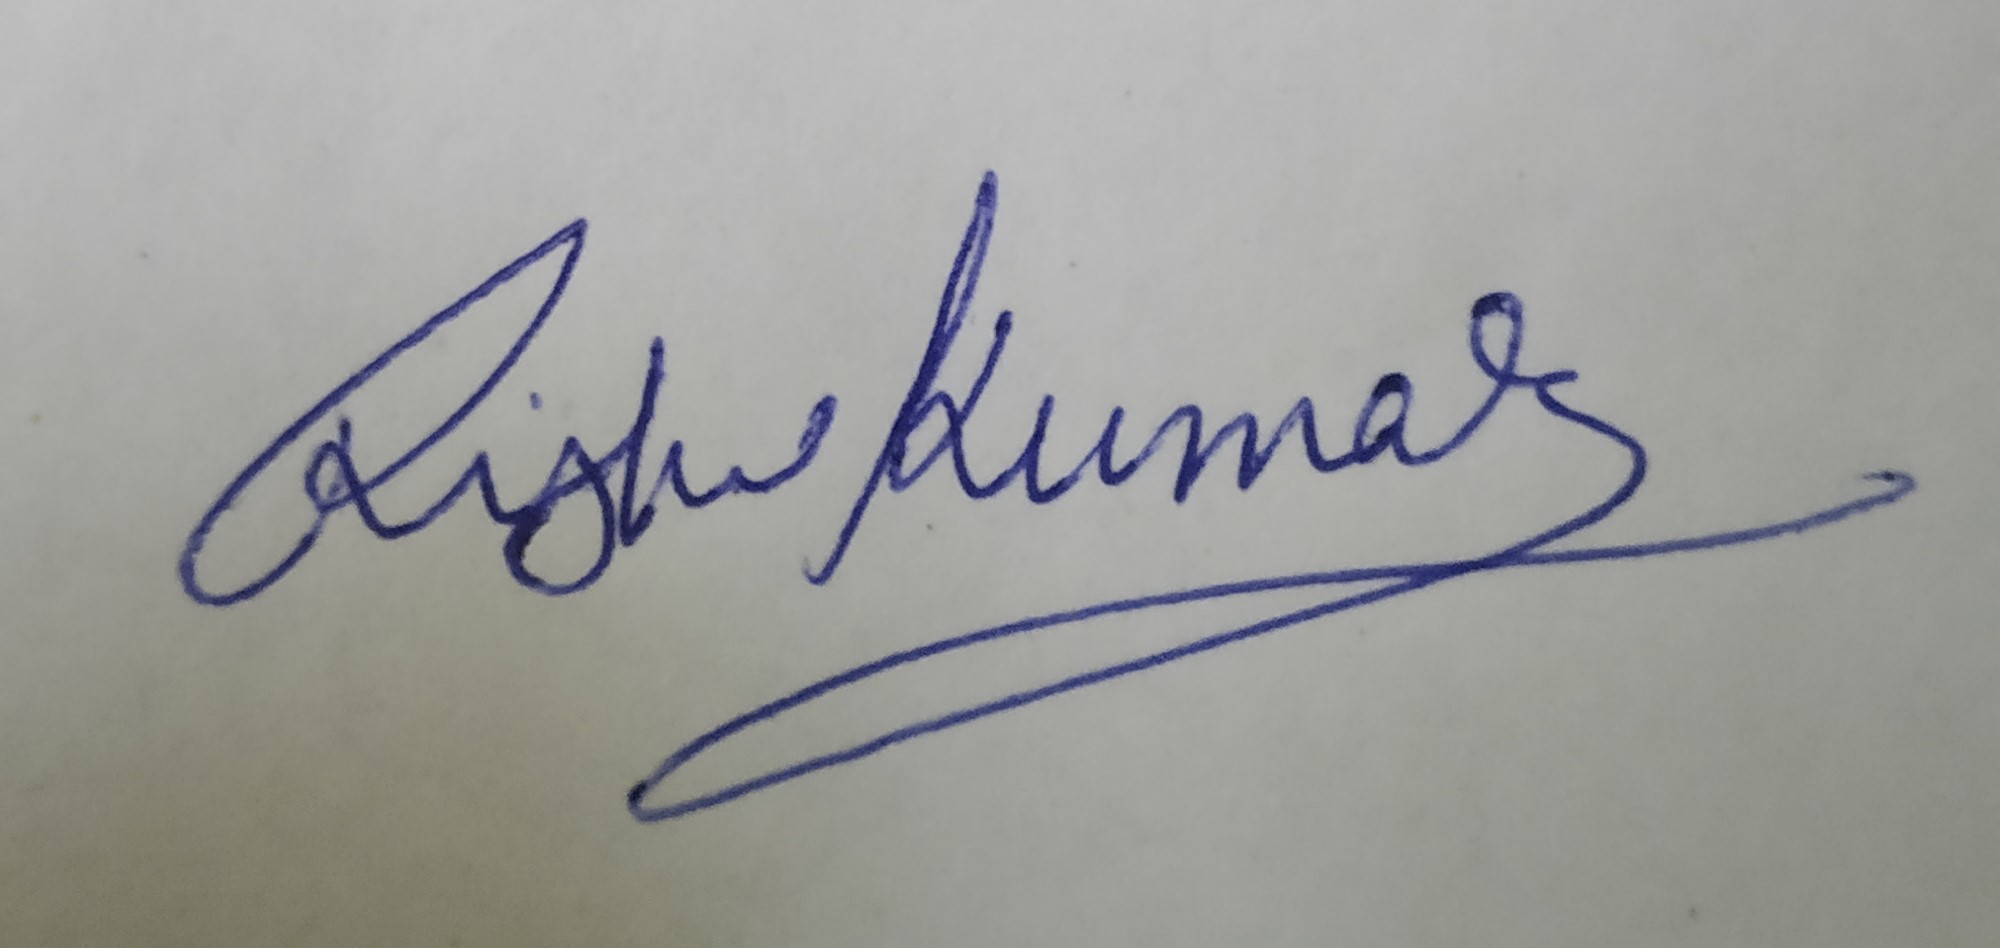 Rishu Kumar